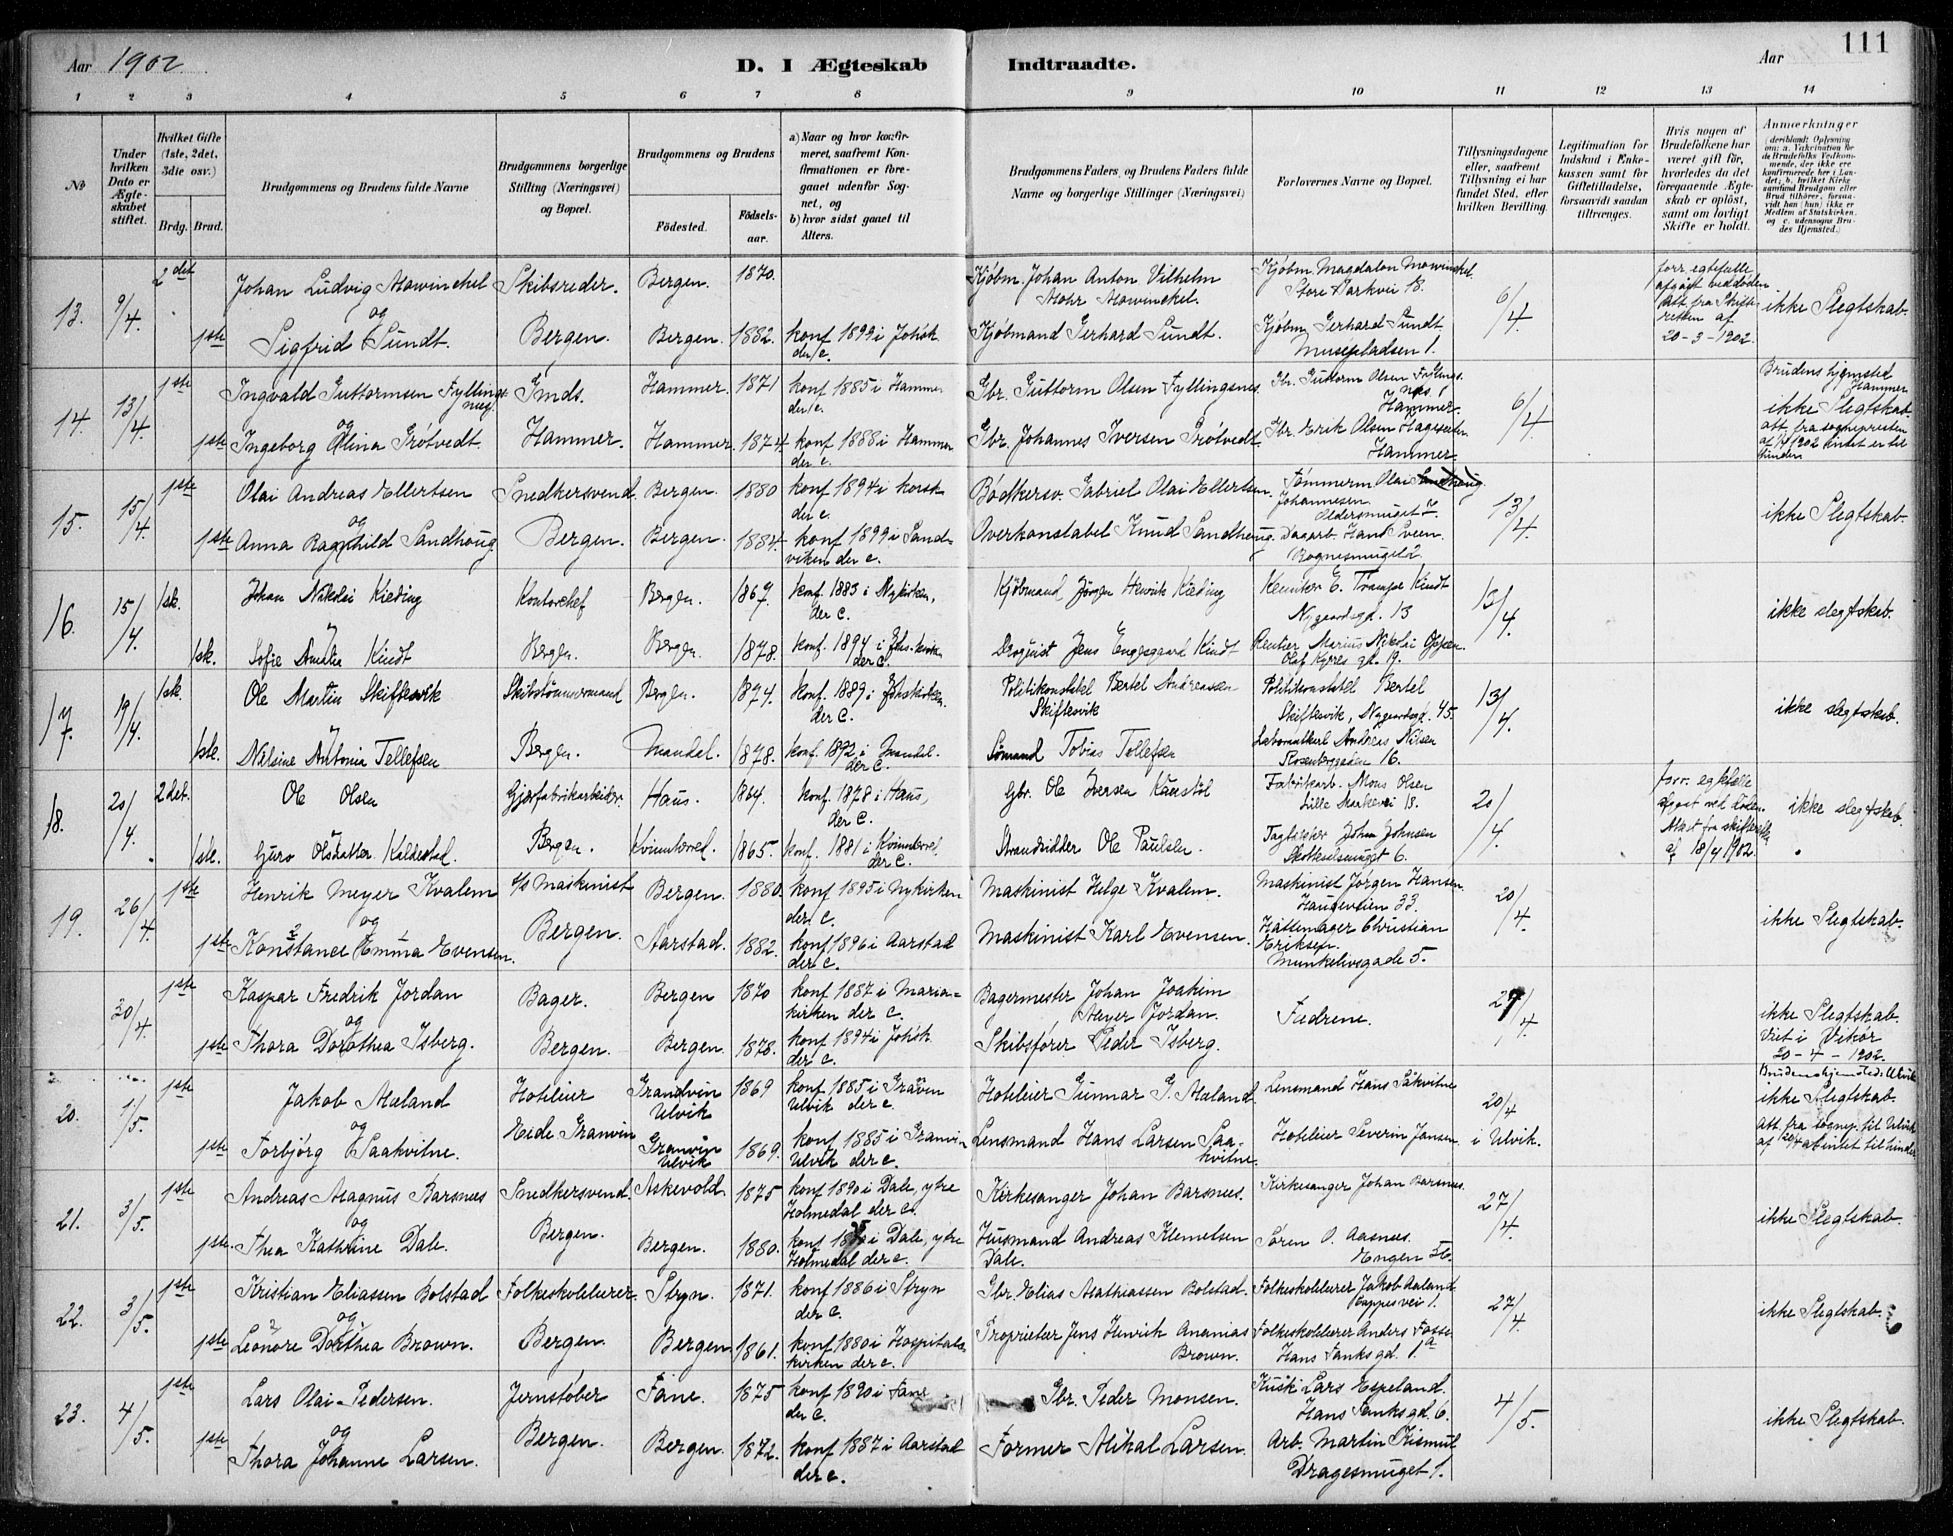 Aar 1902.
D. I Ægteskab Indtraadte.
Aar 111
1 2 3 4 5 6 7 8 9 10 11 12 13 14
No
Under hvilken Dato er Ægteskabet stiftet.
Hvilket Gifte (1ste, 2det, 3die osv.)
Brdg. Brud.
Brudgommens og Brudens fulde Navne
Brudgommens borgerlige Stilling (Næringsvei) og Bopæl.
Brudgommens og Brudens
Fødested.
Fødselsaar.
a) Naar og hvor konfirmeret, saafremt Konfirmationen er foregaaet udenfor Sognet, og
b) hvor sidst gaaet til Alters.
Brudgommens Faders og Brudens Faders fulde Navne og borgerlige Stillinger (Næringsvei)
Forlovernes Navne og Bopæl.
Tillysningsdagene eller, saafremt Tillysning ei har fundet Sted, efter hvilken Bevilling.
Legitimation for Indskud i Enkekassen samt for Giftetilladelse, forsaavidt saadan tiltrænges.
Hvis nogen af Brudefolkene har været gift før, hvorledes da det foregaaende Ægteskab er opløst, samt om lovligt Skifte er holdt.
Anmærkninger
(deriblandt: Oplysning om: a. Vakcination for de Brudefolks Vedkommende, der ikke ere konfirmerede her i Landet; b. hvilket Kirkesamfund Brudgom eller Brud tilhører, forsaavidt han (hun) ikke er Medlem af Statskirken, og c. udensogns Brudes Hjemsted.)
13. 9/4. 2det Johan Ludvig Mowinckel Skibsreder. Bergen. 1870. Kjøbm. Johan Anton Vilhelm Mohr Mowinckel. Kjøbm. Magdalon Mowinckel. Store Markvei 18. 6/4 forr. egtefælle afgaat ved døden. Att. fra Skifteretten af 20-3-1902. ikke Slegtskab.
og
1ste Sigfrid Sundt. Bergen. Bergen. 1882. konf 1899 i Johsk. der c. Kjøbmand Gerhard Sundt. Kjøbm Gerhard Sundt Musepladsen 1.
14. 13/4. 1ste Ingvald Guttormsen Fyllingsnes. Gmds. Hammer. 1871 konf 1885 i Hammer der c. Gbr. Guttorm Olsen Fyllingsnes. Gbr. Guttorm Olsen Fyllingsnes. Hammer. 6/4 Brudens hjemsted Hammer ikke Slegtskab. att. fra sognepresten
og
1ste Ingeborg Olina Trötvedt. Hammer. Hammer 1874 konf 1888 i Hammer der c. Gbr. Johannes Iversen Trötvedt. Gbr. Erik Olsen Hammer.
15. 15/4. 1ste Olai Andreas Ellertsen Snedkersvend. Bergen. 1880 konf 1894 i korsk der c. Bødkersv. Gabriel Olai Ellertsen. Tømmerm Olai Johannesen 13/4 ikke Slegtskab.
og
1ste Anna Ragnhild Sandhoug. Bergen. Bergen. 1884. konf 1899 i Sandviken der c. Overkonstabel Knud Sandhoug. Dagarb. Hans Sveen. Rognesmuget 2.
16. 15/4. 1ste. Johan Nikolai Kieding Kontorchef Bergen. 1869. konf. 1883 i Nykirken, der c. Kjøbmand Jørgen Henrik Kieding Kemiker E. Trampe Kindt Nygaardsgd. 13 13/4. ikke slegtskab.
1ste. Sofie Amalia Kindt Bergen. Bergen. 1878. konf. 1894 i Johs.kirken der c. Droguist Jens Engesgaard Kindt Rentier Marius Nikolai
17. 19/4. 1ste. Ole Martin Skiftesvik Skibstømmermand Bergen. 1874. konf. 1889 i Johskirken. der c. Politikonstabel Bertel Andreassen Skiftesvik Politikonstabel Bertel Skiftesvik, Nygaardsgd. 45. 13/4. ikke slegtskab.
1ste. Nilsine Antonia Tellefsen Bergen. Mandal. 1878. konf. 1892 i Mandal. der c. Sømand Tobias Tellefsen Andreas Nilsen Rosenberggaden 16.
18. 20/4. 2det. Ole Olsen Gjærfabrikarbeider. Haus. 1864. konf. 1878 i Haus, der c. Gbr. Ole Iversen Fabrikarb. Mons Olsen Lille Markevei 18. 20/4 forr. egtefælle afgaat ved døden. Attest fra skifteretten af 18/4 1902. ikke slegtskab.
1ste. Guro Olsdatter Kaldestad. Bergen. Kvinnhered. 1865. konf. 1881 i Kvinnhered, der c. Strandsidder Ole Paulsen John Johnsen 6.
19. 26/4. 1ste Henrik Meyer Kvalem S/s Maskinist Bergen. 1880. konf 1895 i Nykirken der c. Maskinist Helge Kvalem. Maskinist Jørgen Hansen. Haugeveien 33. 20/4. ikke Slegtskab.
og
1ste Konstance Emma Evensen. Bergen. Aarstad. 1882. konf 1896 i Aarstad der c. Maskinist Karl Evensen. Hattemager Christian Eriksen. Munkelivsgade 5.
30/4. 1ste Kaspar Fredrik Jordan Bager. Bergen 1870 konf 1887 i Mariakirken der c. Bagermester Johan Joakim Meyer Jordan. Fædrene. 27/4. ikke Slegtskab. Viet i Vikør 20-4-1902.
og
1ste Thora Dorothea Isberg. Bergen. Bergen. 1878. konf 1894 i Johsk. der c. Skibsfører Peder Isberg.
20. 1/5. 1ste Jakob Mæland Hoteleier Grandvin Ulvik 1869 konf 1885 i Graven Ulvik der c. Hoteleier Gunnar G. Mæland. Lensmand Hans Såkvitne 20/4 i Ulvik. Brudens hjemsted: Ulvik ikke Slegtskab. att. fra sognep. til Ulvik
og
1ste Torbjørg Saakvitne. Eide Granvin Granvin Ulvik 1869. konf 1885 i Granvin Ulvik der c. Lensmand Hans Larsen Saakvitne. Hoteleier Severin Jansen
21. 3/5. 1ste Andreas Magnus Barsnes Snedkersvend. Askevold. 1875 konf 1890 i Dale, ytre Holmedal der c. Kirkesanger Johan Barsnes. Kirkesanger Johan Barsnes. 27/4. ikke Slegtskab.
og
1ste. Thea Kathrine Dale. Bergen. Bergen. 1880. konf i Dale, ytre Holmedal der c. Husmand Andreas Klemetsen Dale. Søren O. Aasnes. Engen
22. 3/5. 1ste Kristian Eliassen Bolstad Folkeskolelærer. Stryn. 1871. konf 1886 i Stryn der c. Gbr. Elias Mathiassen Bolstad. Folkeskolelærer Jakob Aaland 27/4. ikke Slegtskab.
og
1ste Leonore Dorthea Brown. Bergen. Bergen 1861. konf 1880 i Hospitalskirken der c. Proprietær Jens Henrik Ananias Brown. Folkeskolelærer Anders Fosse Hans Tanks gd. 1a
23. 4/5. 1ste Lars Olai Pedersen. Jernstøber Fane. 1875 konf 1890 i Fane der c. Gbr. Peder Monsen. Kusk Lars Espeland. Hans Tanks gd. 6. 4/5. ikke Slegtskab.
og
1ste Thora Johanne Larsen. Bergen. Bergen. 1872. konf 1887 i Aarstad der c. Former Mikal Larsen. Arb. Martin Kismul Dragesmuget 1.